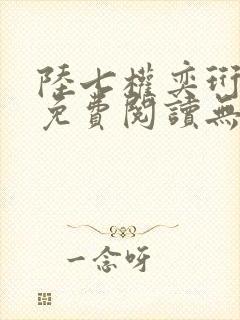 陸七權奕珩
免費閱讀無
一念呀